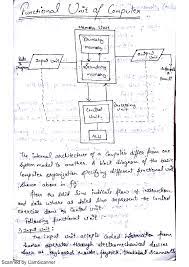 Functional Unit of Computer
Memory Unit
Primary
memory
Secondary
memory
Input Unit
Output Unit
Control
Unit
ALU
The internal architecture of a computer differs from one
system model to another. A block diagram of the basic
computer organization specifying different functional unit
shown above in fig.
Here the solid line indicate flow of instruction
and data where as dotted line represent the control
exercise done by control unit.
Following functional unit:-
Input unit:-
The input unit accepts coded information from
human operator through electromechanical devices
such as keyboard, mouse, joystick, Trackball, Scanner
Scanned by CamScanner